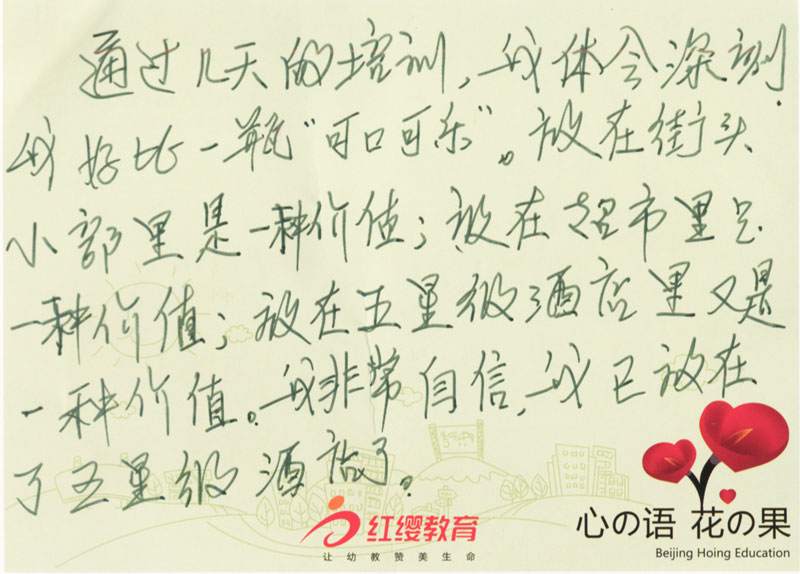 通过几天的培训，我体会深刻
我好比一瓶“可口可乐”。放在街头
小部里是一种价值；放在超市里是
一种价值；放在五星级酒店里又是
一种价值。我非常自信，我已放在
了五星级酒店了。
红缨教育
让幼教赞美生命
心の语 花の果
Beijing Hoing Education